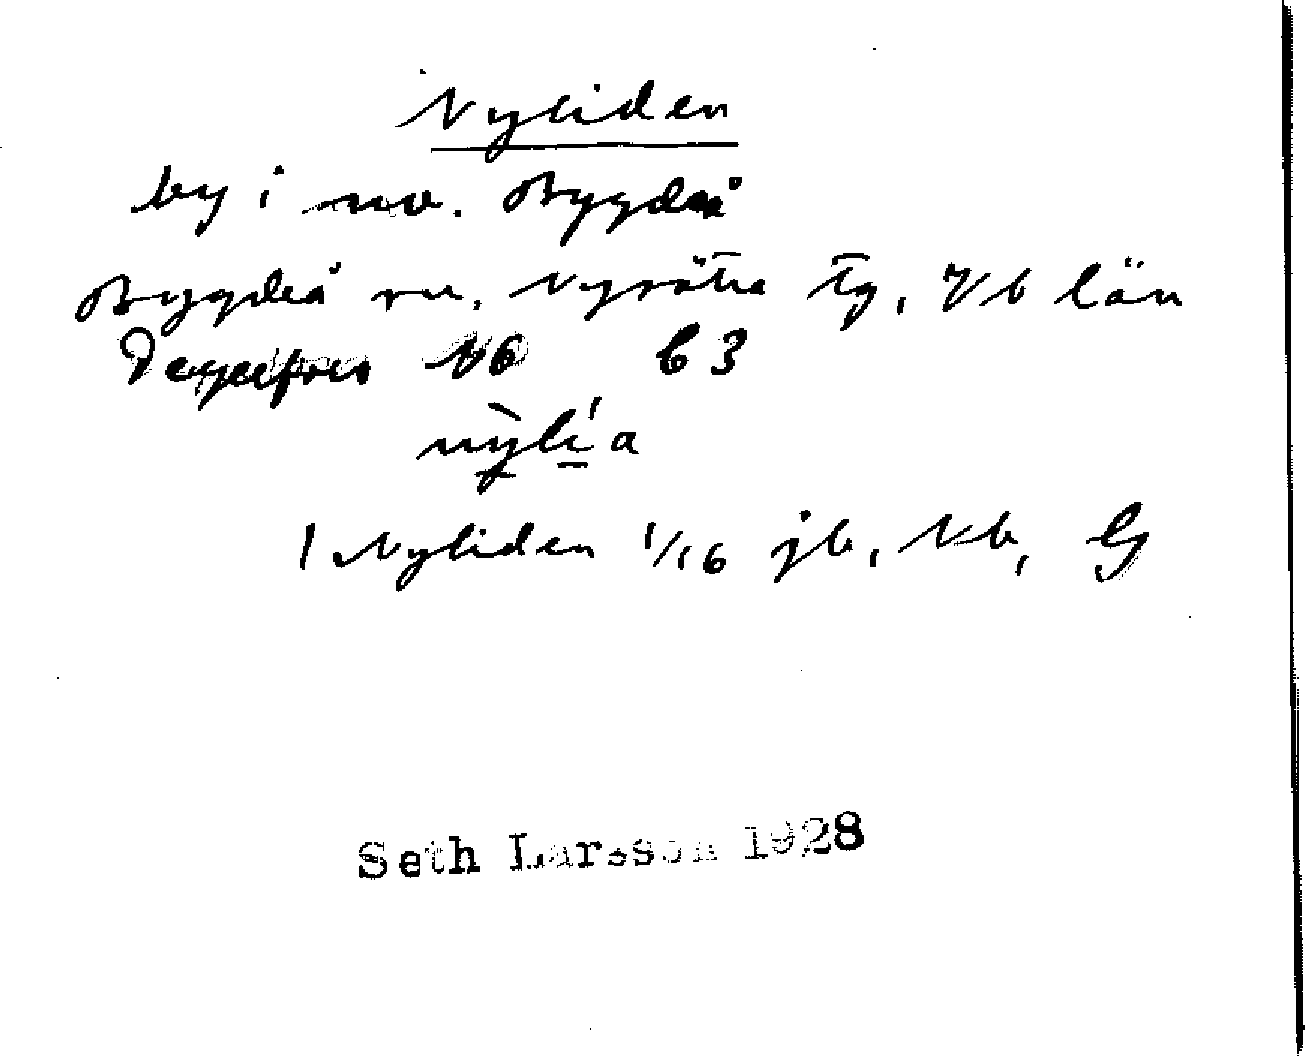 Nyliden
by i nv. Bygdeå
Bygdeå sn, Nysätra tg, Vb län
Degerfors V6 b3
nỳlía
1 Nyliden 1/16 jb, Vb, G
Seth Larsson 1928